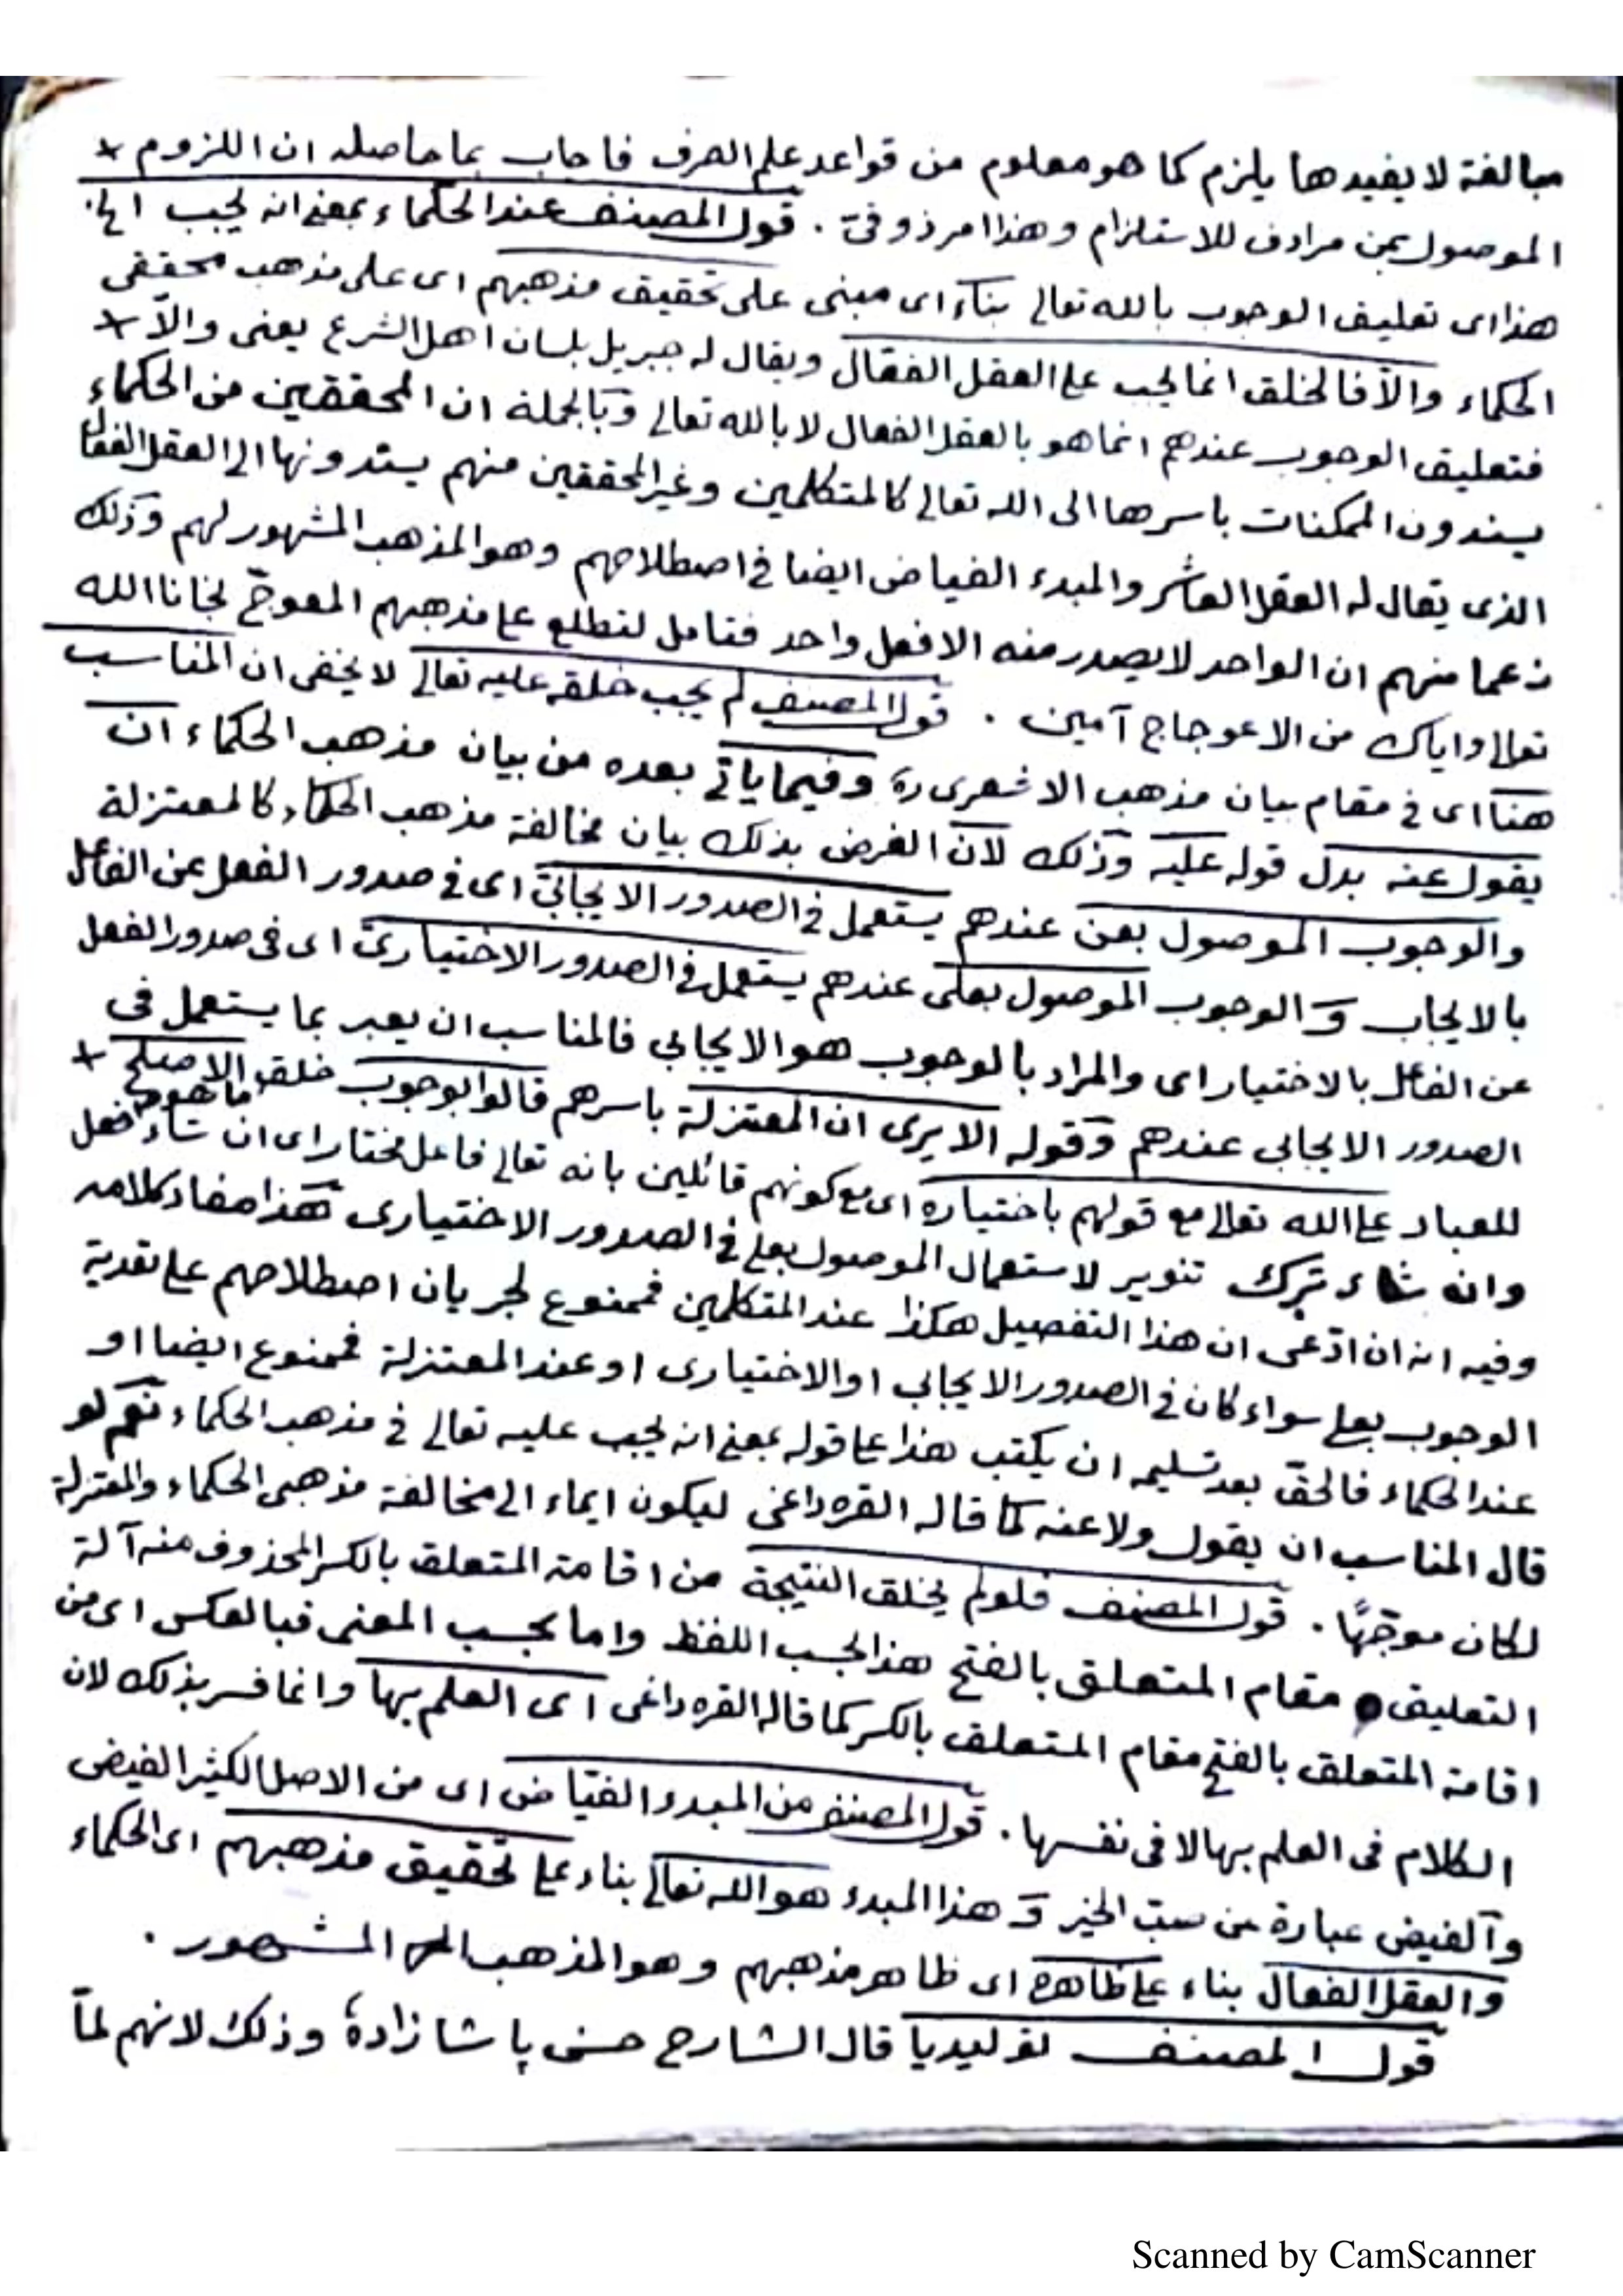 مبالغة لا يفيدها يلزم كما هو معلوم من قواعد علم الصرف فاجاب بما حاصله ان اللزوم
الموصول بمن مرادف للاستلزام وهذا امر ذوقى . قول المصنف عند الحكماء بمعنى انه يجب الخ.
هذا اى تعليق الوجوب بالله تعالى بناء اى مبنى على تحقيق مذهبهم اى على مذهب محققى
الحكماء والّا فالخلق انما يجب على العقل الفعّال ويقال له جبريل بلسان اهل الشرع يعنى والّا
فتعليق الوجوب عندهم انما هو بالعقل الفعال لا بالله تعالى وبالجملة ان المحققين من الحكماء
يسندون الممكنات باسرها الى الله تعالى كالمتكلمين وغير المحققين منهم يسندونها الى العقل الفعال
الذى يقال له العقل العاشر والمبدء الفياض ايضا فى اصطلاحهم وهو المذهب المشهور لهم وذلك
زعما منهم ان الواحد لا يصدر منه الا فعل واحد فتامل لتطلع على مذهبهم المعوجّ نجانا الله
تعالى واياك من الاعوجاج آمين . قول المصنف لم يجب خلقه عليه تعالى لا يخفى ان المناسب
هنا اى فى مقام بيان مذهب الاشعرى ره وفيما ياتى بعده من بيان مذهب الحكماء ان
يقول عنه بدل قوله عليه وذلك لان الغرض بذلك بيان مخالفة مذهب الحكماء كالمعتزلة
والوجوب الموصول بعن عندهم يستعمل فى الصدور الايجابىّ اى فى صدور الفعل عن الفاعل
بالايجاب و الوجوب الموصول بعلى عندهم يستعمل فى الصدور الاختيارىّ اى فى صدور الفعل
عن الفاعل بالاختيار اى والمراد بالوجوب هو الايجابي فالمناسب ان يعبر بما يستعمل فى
الصدور الايجابي عندهم وقوله الا يرى ان المعتزلة باسرهم قالوا بوجوب خلق ما هو الاصلح
للعباد على الله تعالى مع قولهم باختياره اى مع كونهم قائلين بانه تعالى فاعل مختار اى ان شاء فعل
وان شاء ترك تنوير لاستعمال الموصول بعلى فى الصدور الاختيارى هذا مفاد كلامه
وفيه انه ان ادّعى ان هذا التفصيل هكذا عند المتكلمين فممنوع لجريان اصطلاحهم على تعدية
الوجوب بعلى سواء كان فى الصدور الايجابي او الاختيارى او عند المعتزلة فممنوع ايضا او
عند الحكماء فالحقّ بعد تسليمه ان يكتب هذا على قوله بمعنى انه يجب عليه تعالى فى مذهب الحكماء نعم لو
قال المناسب ان يقول ولا عنه كما قاله القره داغى ليكون ايماء الى مخالفة مذهبى الحكماء والمعتزلة
لكان موجّهًا . قول المصنف فلو لم يخلق النتيجة من اقامة المتعلق بالكسر المحذوف منه آلة
التعليق مقام المتعلق بالفتح هذا بحسب اللفظ واما بحسب المعنى فبالعكس اى من
اقامة المتعلق بالفتح مقام المتعلق بالكسر كما قاله القره داغى اى العلم بها وانما فسر بذلك لان
الكلام فى العلم بها لا فى نفسها . قول المصنف من المبدء الفيّاض اى من الاصل الكثير الفيض
والفيض عبارة عن صبّ الخير و هذا المبدء هو الله تعالى بناء على تحقيق مذهبهم اى الحكماء
والعقل الفعال بناء على ظاهره اى ظاهر مذهبهم وهو المذهب المشهور .
قول المصنف توليديا قال الشارح حسن پاشا زاده وذلك لانهم لمّا
Scanned by CamScanner